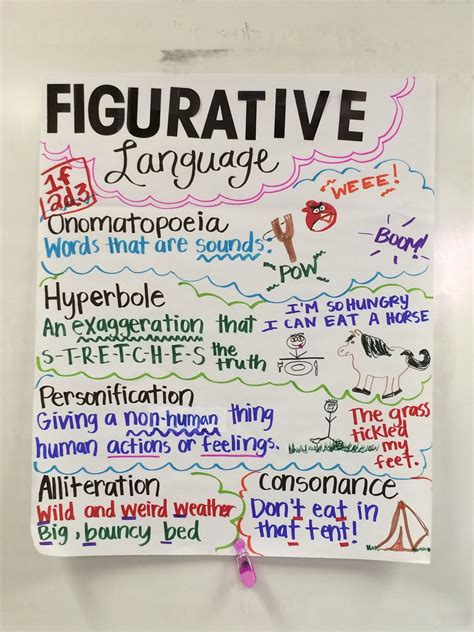 FIGURATIVE
Language
1f
2d.3
WEEE!
Onomatopoeia
Words that are sounds.
BOOM!
POW
Hyperbole
I'M SO HUNGRY
An exaggeration that
I CAN EAT A HORSE
S-T-R-E-T-C-H-E-S the
truth
Personification
Giving a non-human thing
human actions or feelings.
The grass
tickled
my
feet.
Alliteration
Wild and weird weather
Big, bouncy bed
Consonance
Don't eat in
that tent!